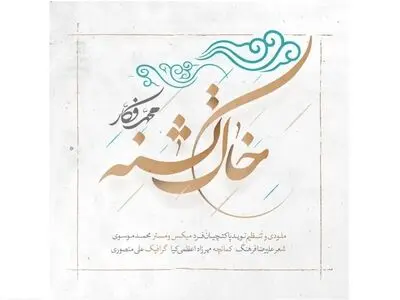 خاک تشنه
ملودی و تنظیم نوید باکتچیان فرد میکس و مستر محمد موسوی
شعر علیرضا فرهنگ کمانچه مهرزاد اعظمی کیا گرافیک علی منصوری